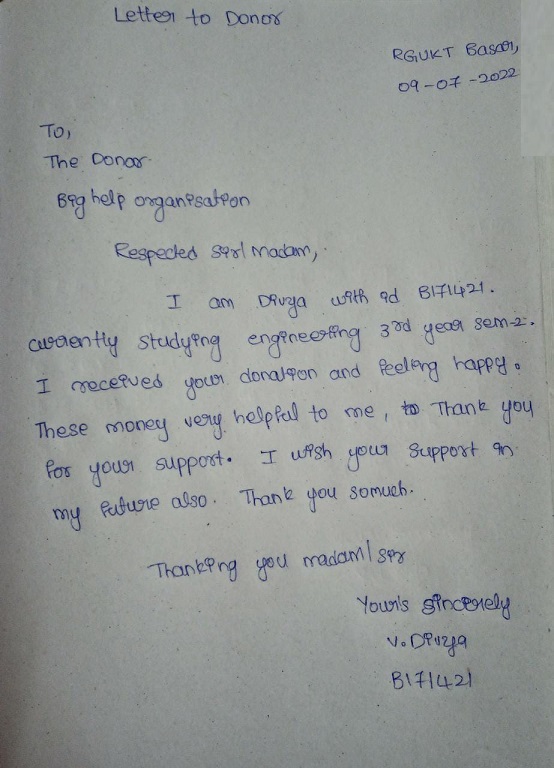 Letter to Donor
RGUKT Basar,
09-07-2022
To,
The Donor
Big help organisation
Respected sir/madam,
I am Divya with id B171421.
currently studying engineering 3rd year sem-2.
I received your donation and feeling happy.
These money very helpful to me, to Thank you
for your support. I wish your support in
my future also. Thank you somuch.
Thanking you madam/sir
Your's sincerely
V. Divya
B171421